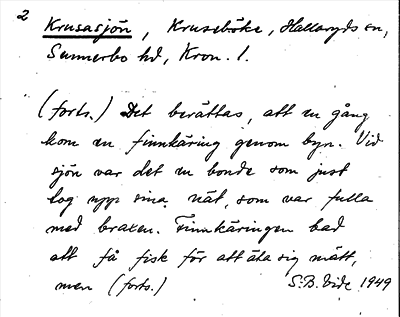 2
Krusasjön, Kruseböke, Hallaryds sn,
Sunnerbo hd, Kron. l.
(forts.) Det berättas, att en gång
kom en finnkäring genom byn. Vid
sjön var det en bonde som just
tog upp sina nät, som var fulla
med braxen. Finnkäringen bad
att få fisk för att äta sig mätt,
men (forts.) S.B. Vide 1949